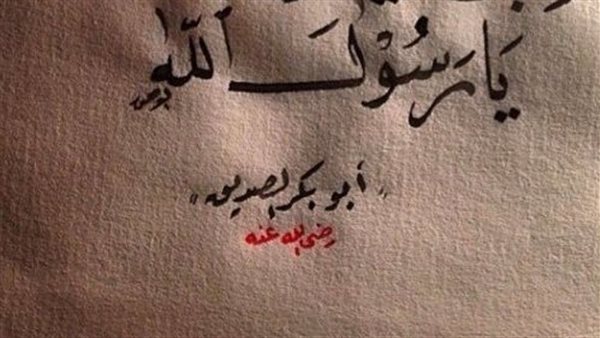 يَا رَسُوْلَ اللّٰه
"أبو بكر الصديق"
رضي الله عنه